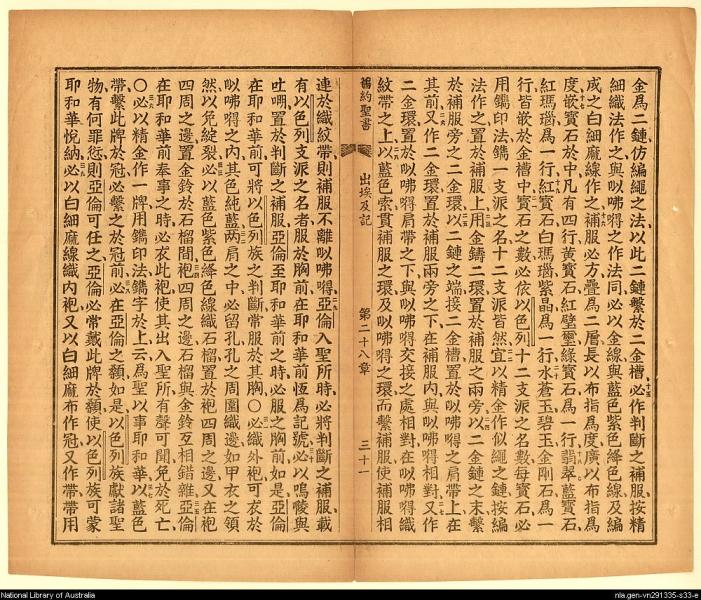 金爲二鏈仿編繩之法以此二鏈繫於二金槽必作判斷之補服按精
細織法作之與以咈得之作法同必以金線與藍色紫色絳色線及編
成之白細麻線作之補服必方疊爲二層長以布指爲度廣以布指爲
度嵌寶石於中凡有四行黃寶石紅璧璽綠寶石爲一行翡翠藍寶石
紅瑪瑙爲一行紅寶石白瑪瑙紫晶爲一行水蒼玉碧玉金剛石爲一
行皆嵌於金槽中寶石之數必依以色列十二支派之名數每寶石必
用鐫印法鐫一支派之名十二支派皆然宜以精金作似繩之鏈按編
法作之置於補服上用金鑄二環置於補服之兩旁以二金鏈之末繫
於補服旁之二金環以二鏈之端接二金槽置於以咈得之肩帶上在
其前又作二金環置於補服兩旁之下在補服內與以咈得相對又作
二金環置於以咈得肩帶之下與以咈得交接之處相對在以咈得織
紋帶之上以藍色索貫補服之環及以咈得之環而繫補服使補服相
舊約聖書
出埃及記
第二十八章
三十一
連於織紋帶則補服不離以咈得亞倫入聖所時必將判斷之補服載
有以色列支派之名者服於胸前在耶和華前恆爲記號必以烏𠾖與
吐𠵽置於判斷之補服亞倫至耶和華前之時必服之胸前如是亞倫
在耶和華前可將以色列族之判斷常服於其胸〇必織外袍可衣於
以咈得之內其色純藍两肩之中必留孔孔之周圍織邊如甲衣之領
然以免綻裂必以藍色紫色絳色線織石榴置於袍四周之邊又在袍
四周之邊置金鈴於石榴間袍四周之邊石榴與金鈴互相錯雜亞倫
在耶和華前奉事之時必衣此袍使其出入聖所有聲可聞免於死亡
〇必以精金作一牌用鐫印法鐫字於上云爲聖以事耶和華以藍色
帶繫此牌於冠必繫之於冠前必在亞倫之額如是以色列族獻諸聖
物有何罪愆則亞倫可任之亞倫必常戴此牌於額使以色列族可蒙
耶和華悅納必以白細麻線織內袍又以白細麻布作冠又作帶帶用
National Library of Australia
nla.gen-vn291335-s33-e